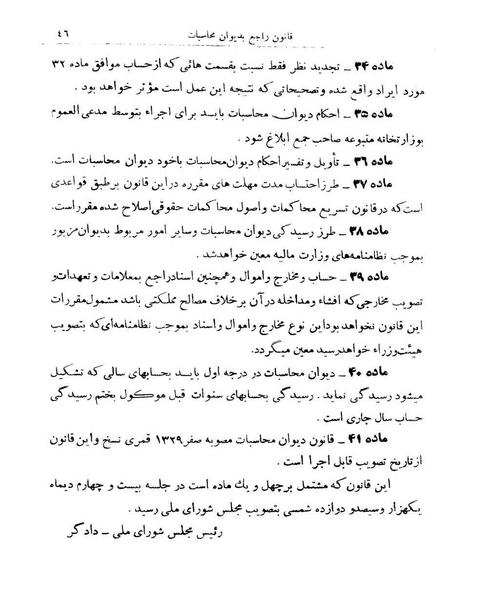 قانون راجع بدیوان محاسبات
٤٦
ماده ۳۴ ـ تجدید نظر فقط نسبت بقسمت هائی که از حساب موافق ماده ۳۲
مورد ایراد واقع شده و تصحیحاتی که نتیجه این عمل است مؤثر خواهد بود .
ماده ۳۵ ـ احکام دیوان محاسبات باید برای اجراء بتوسط مدعی العموم
بوزارتخانه متبوعه صاحب جمع ابلاغ شود .
ماده ۳۶ ـ تأویل و تفسیر احکام دیوان محاسبات با خود دیوان محاسبات است.
ماده ۳۷ ـ طرز احتساب مدت مهلت های مقرره در این قانون بر طبق قواعدی
است که در قانون تسریع محاکمات و اصول محاکمات حقوقی اصلاح شده مقرر است.
ماده ۳۸ ـ طرز رسیدگی دیوان محاسبات و سایر امور مربوط بدیوان مزبور
بموجب نظامنامه های وزارت مالیه معین خواهد شد .
ماده ۳۹ ـ حساب و مخارج و اموال و همچنین اسناد راجع بمعاملات و تعهدات و
تصویب مخارجی که افشاء و مداخله در آن بر خلاف مصالح مملکتی باشد مشمول مقررات
این قانون نخواهد بود این نوع مخارج و اموال و اسناد بموجب نظامنامه ای که بتصویب
هیئت وزراء خواهد رسید معین میگردد.
ماده ۴۰ ـ دیوان محاسبات در درجه اول باید بحسابهای سالی که تشکیل
میشود رسیدگی نماید . رسیدگی بحسابهای سنوات قبل موکول بختم رسیدگی
حساب سال جاری است .
ماده ۴۱ ـ قانون دیوان محاسبات مصوبه صفر ۱۳۲۹ قمری نسخ و این قانون
از تاریخ تصویب قابل اجرا است .
این قانون که مشتمل بر چهل و یك ماده است در جلسه بیست و چهارم دیماه
یکهزار و سیصد و دوازده شمسی بتصویب مجلس شورای ملی رسید .
رئیس مجلس شورای ملی ـ دادگر